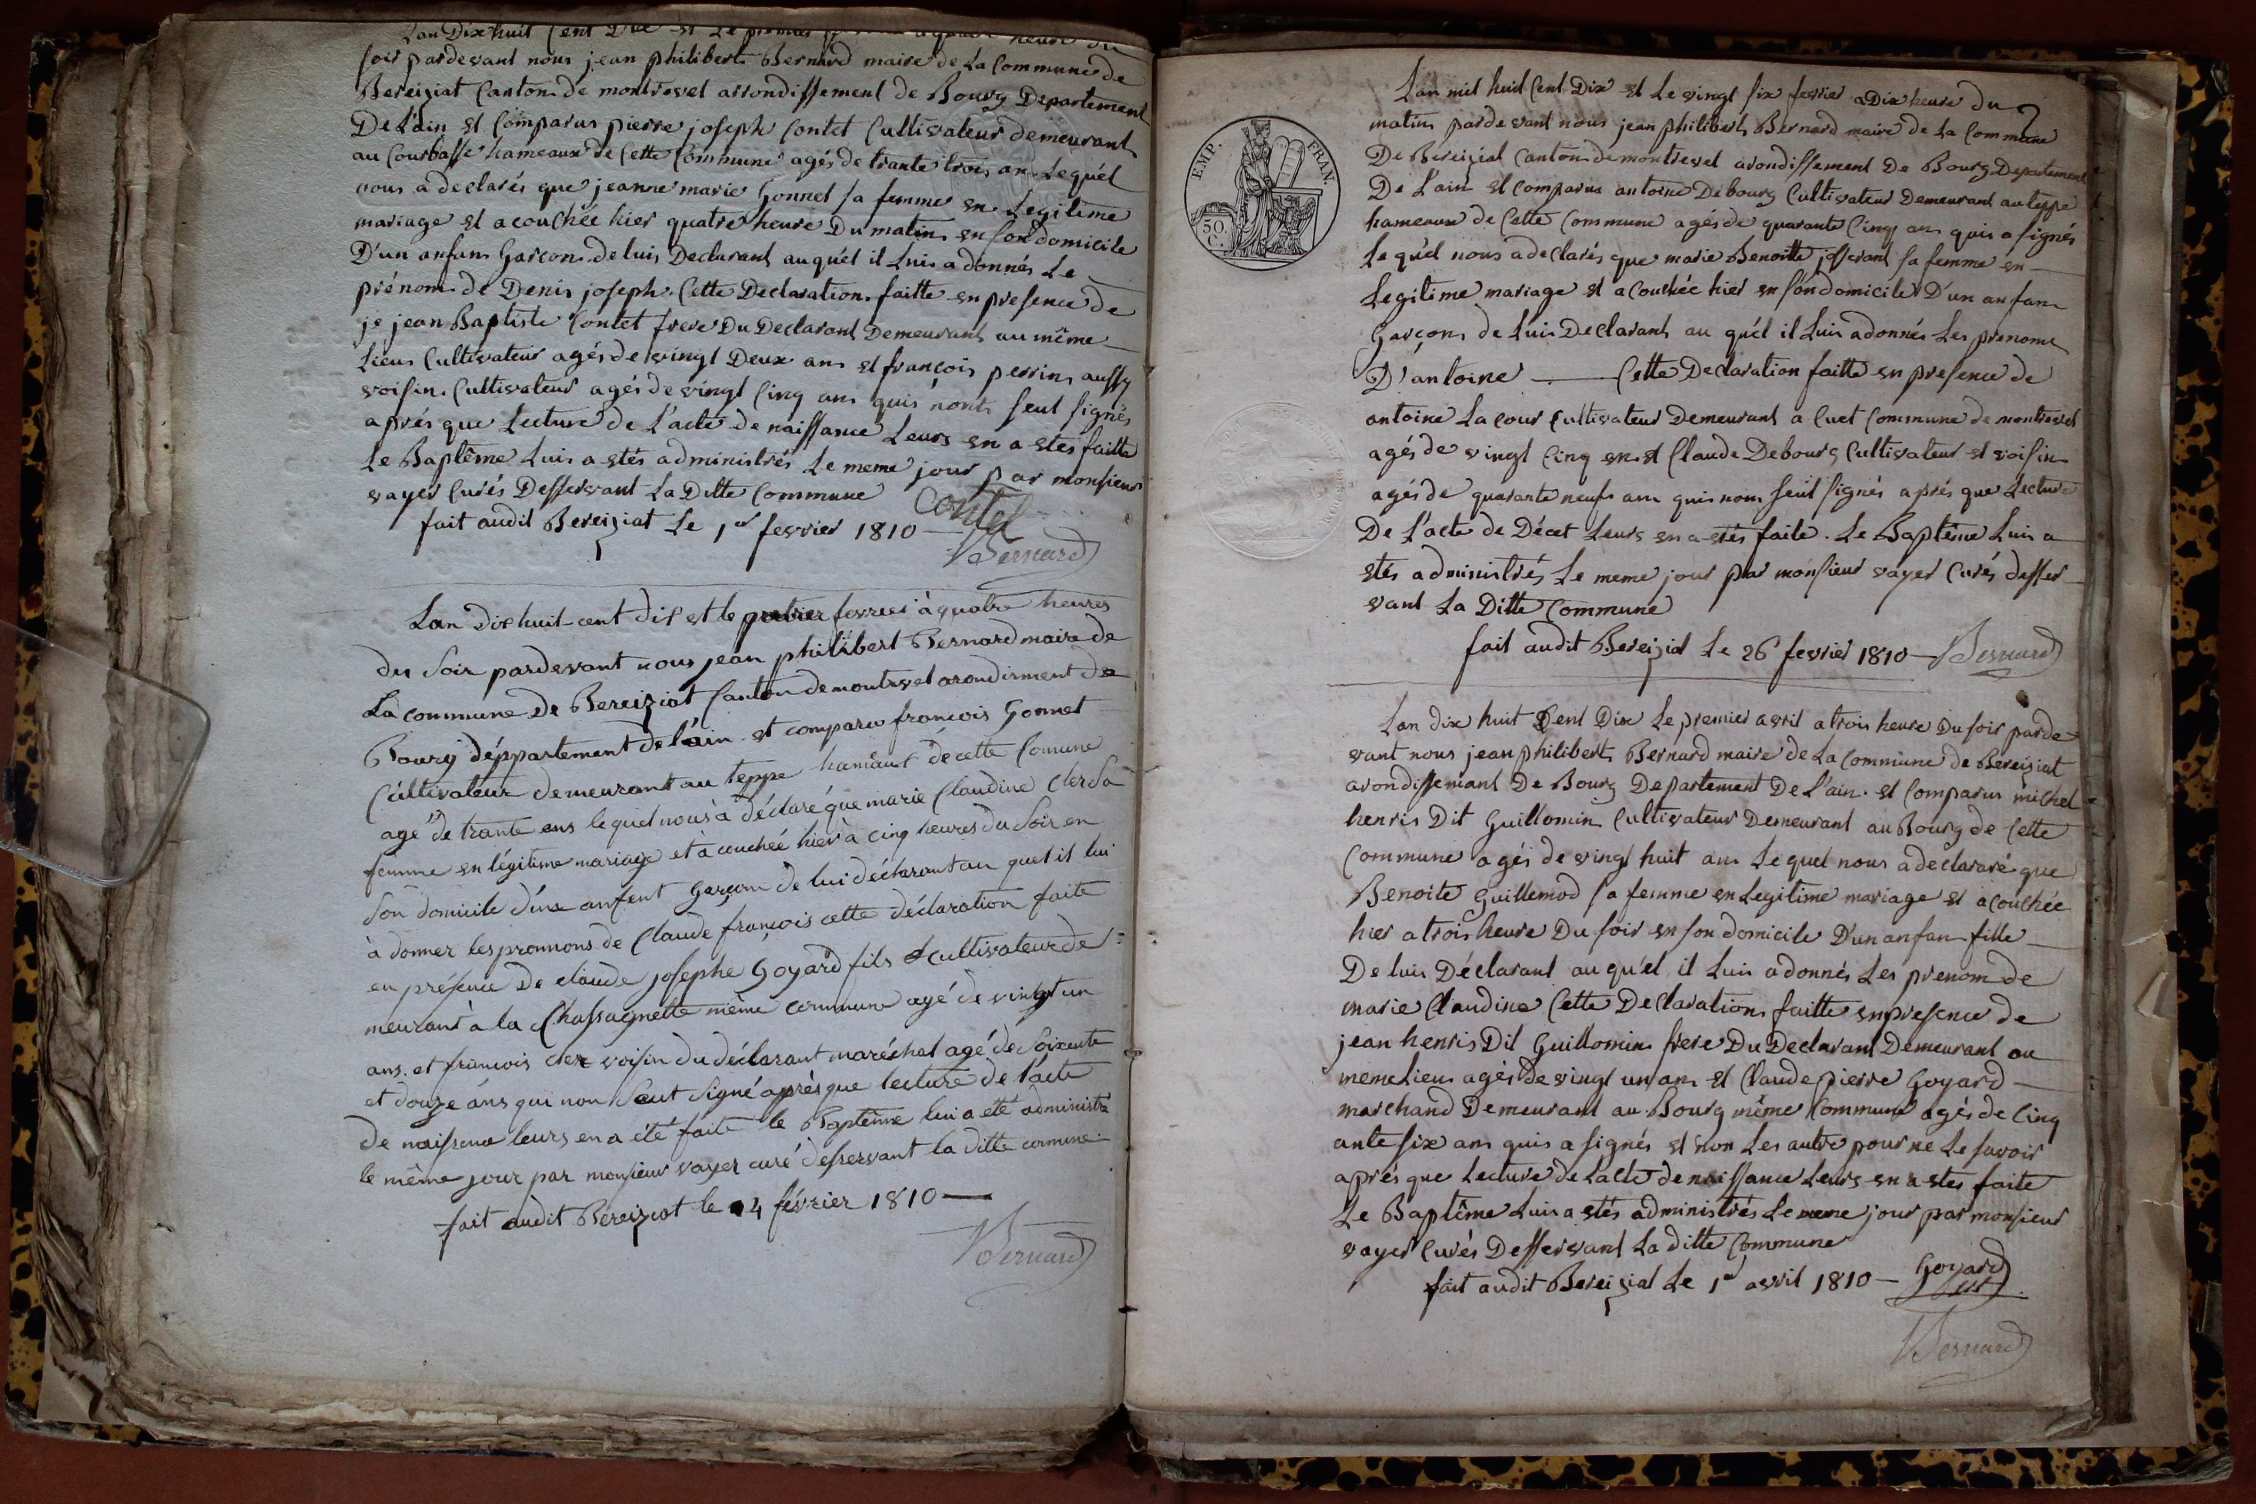 Lan Dix huit Cent Dix et Le premier heure du
soir pardevant nous jean philibert Bernard maire de La Commune de
Bereiziat Canton de montrevel arrondissement de Bourg Departement
De L'ain et Comparus pierre joseph Contet Cultivateur demeurant
au Courbasse hameaux de Cette Commune agés de trante trois an Lequél
nous a declarés que jeanne marie Gonnet sa femme en Legitime
mariage et acouchée hier quatre heure Du matin en son domicile
D'un anfan Garcon de luis Declarant auquél il Luis a donnés Le
prénom de Denis joseph. Cette Declaration faitte en presence de
je jean Baptiste Contet frere Du Declarant Demeurant au même
Lieu Cultivateur agés de vingt Deux ans et françois perrin aussy
voisin Cultivateur agés de vingt Cinq ans quis nont seul signés
aprés que Lecture de L'acte de naissance Leurs en a etes faitte
Le Baptême Luis a etés administrés Le meme jour par monsieur
vayer Curés Desservant La Ditte Commune Contet
fait audit Bereiziat Le 1er fevrier 1810
Bernard
Lan Dix huit cent dix et le fevrier à quatre heures
du soir pardevant nous jean philibert Bernard maire de
La commune de Bereiziat Canton de montrevel arondirment de
Bourg déppartement de l'ain et comparu françois Gonnet
Cultivateur demeurant au teppe hamaut de cette Comune
agé de trante ans lequel nous à déclaré que marie Claudine Cler Sa
femme en légitime mariage et à couchée hier à cinq heures du Soir en
Son domicile d'une anfent Garçon de lui déclarant au quel il lui
à donner les pronnons de Claude françois cette déclaration faite
en présence De claude josephe Goyard fils cultivateur de
meurant à la Chassagnette même commune agé de vinght un
ans. et francois cler voisin du déclarant maréchal agé de Soixente
et douze ans qui non Seut signé après que lecture de l'acte
De naissence leurs en a été faite le Baptême lui a été administré
le même jour par monsieur vayer curé desservant la ditte commune
fait audit Bereiziat le 4 février 1810
Bernard
EMP. FRAN.
50 C.
Lan mil huit Cent Dix et Le vingt six fevrier a Dix heure du
matin pardevant nous jean philibert Bernard maire de La Commune
De Bereiziat Canton de montrevel arondissement De Bourg Departement
De L'ain et comparus antoine Debourg Cultivateur Demeurant au teppe
hameaux de Cette Commune agés de quarante Cinq an quis a signés
Le quél nous a declarés que marie Benoitte josserant sa femme en
Legitime mariage et acouchée hier en son domicile D'un anfan
Garçon de Luis Declarant au quél il Luis a donnés Les prenoms
D'antoine Cette Declaration faitte en presence de
antoine La cour Cultivateur Demeurant a Cuet Commune de montrevel
agés de vingt Cinq an et Claude Debourg Cultivateur et voisin
agés de quarante neuf an quis nont seul signés aprés que Lecture
De L'acte de Décet Leurs en a etés faite. Le Baptême Luis a
etés administrés Le meme jour par monsieur vayer Curés desser
vant La Ditte Commune
fait audit Bereiziat Le 26 fevrier 1810 Bernard
Lan dix huit Cent Dix Le premier avril a trois heure Du soir parde
vant nous jean philibert Bernard maire de La Commune de Bereiziat
arondissemant De Bourg Departement De L'ain. et Comparus michel
henris Dit Guillomin Cultivateur Demeurant au Bourg de Cette
Commune agés de vingt huit an Lequel nous a declararé que
Benoite Guillemod sa femme en Legitime mariage et acouchée
hier a trois heure Du soir en son domicile D'un anfan fille
De luis Déclarant au qu'el il Luis a donnés Les prenom de
marie Claudine Cette Declaration faitte en presence de
jean henris Dit Guillomin frere Du Declarant Demeurant au
meme Lieu agés de vingt un an et Claude pierre Goyard
marchand Demeurant au Bourg même Commune agés de Cinq
ante six ans quis a signés et non Les autre pour ne Le savoir
aprés que Lecture de Lacte de naissance Leurs en a etes faite
Le Baptême Luis a etés administrés Le meme jour par monsieur
vayer Curés Desservant La ditte Commune
fait audit Bereiziat Le 1er avril 1810 Goyard
Bernard